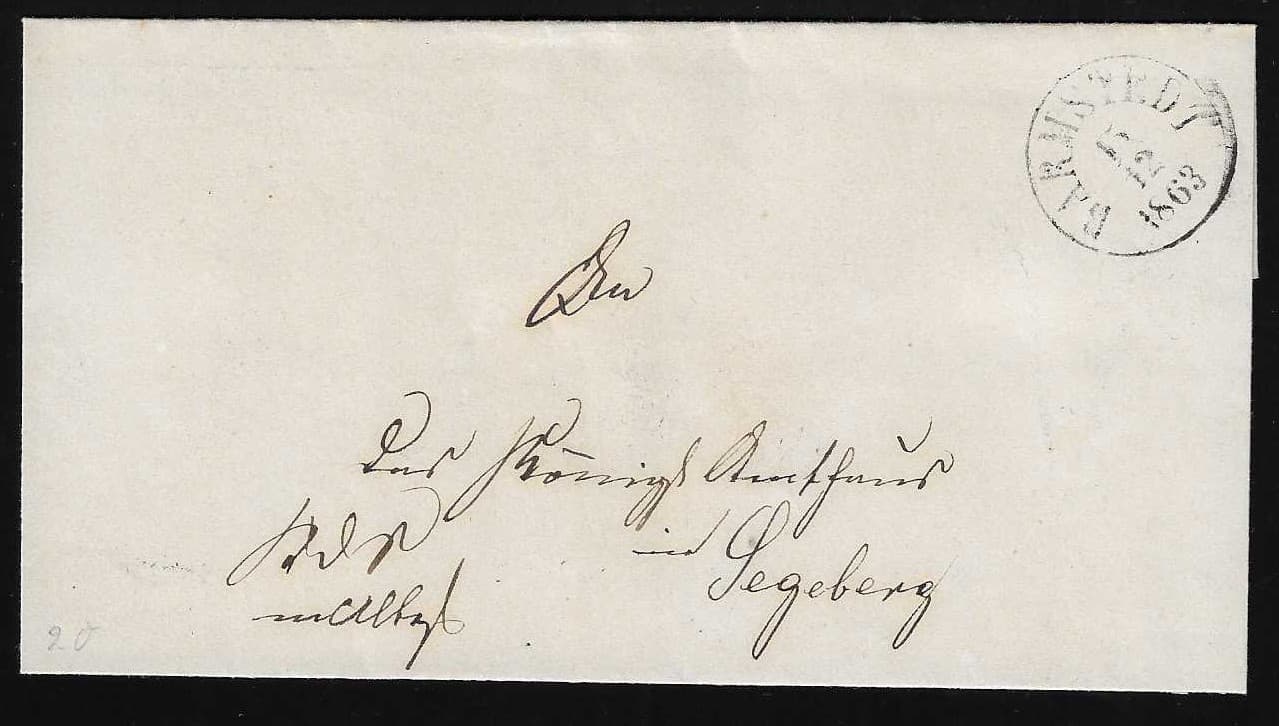 BARMSTEDT
15
12
1863
An
Das Königl Amthaus
in Segeberg
K d S
20